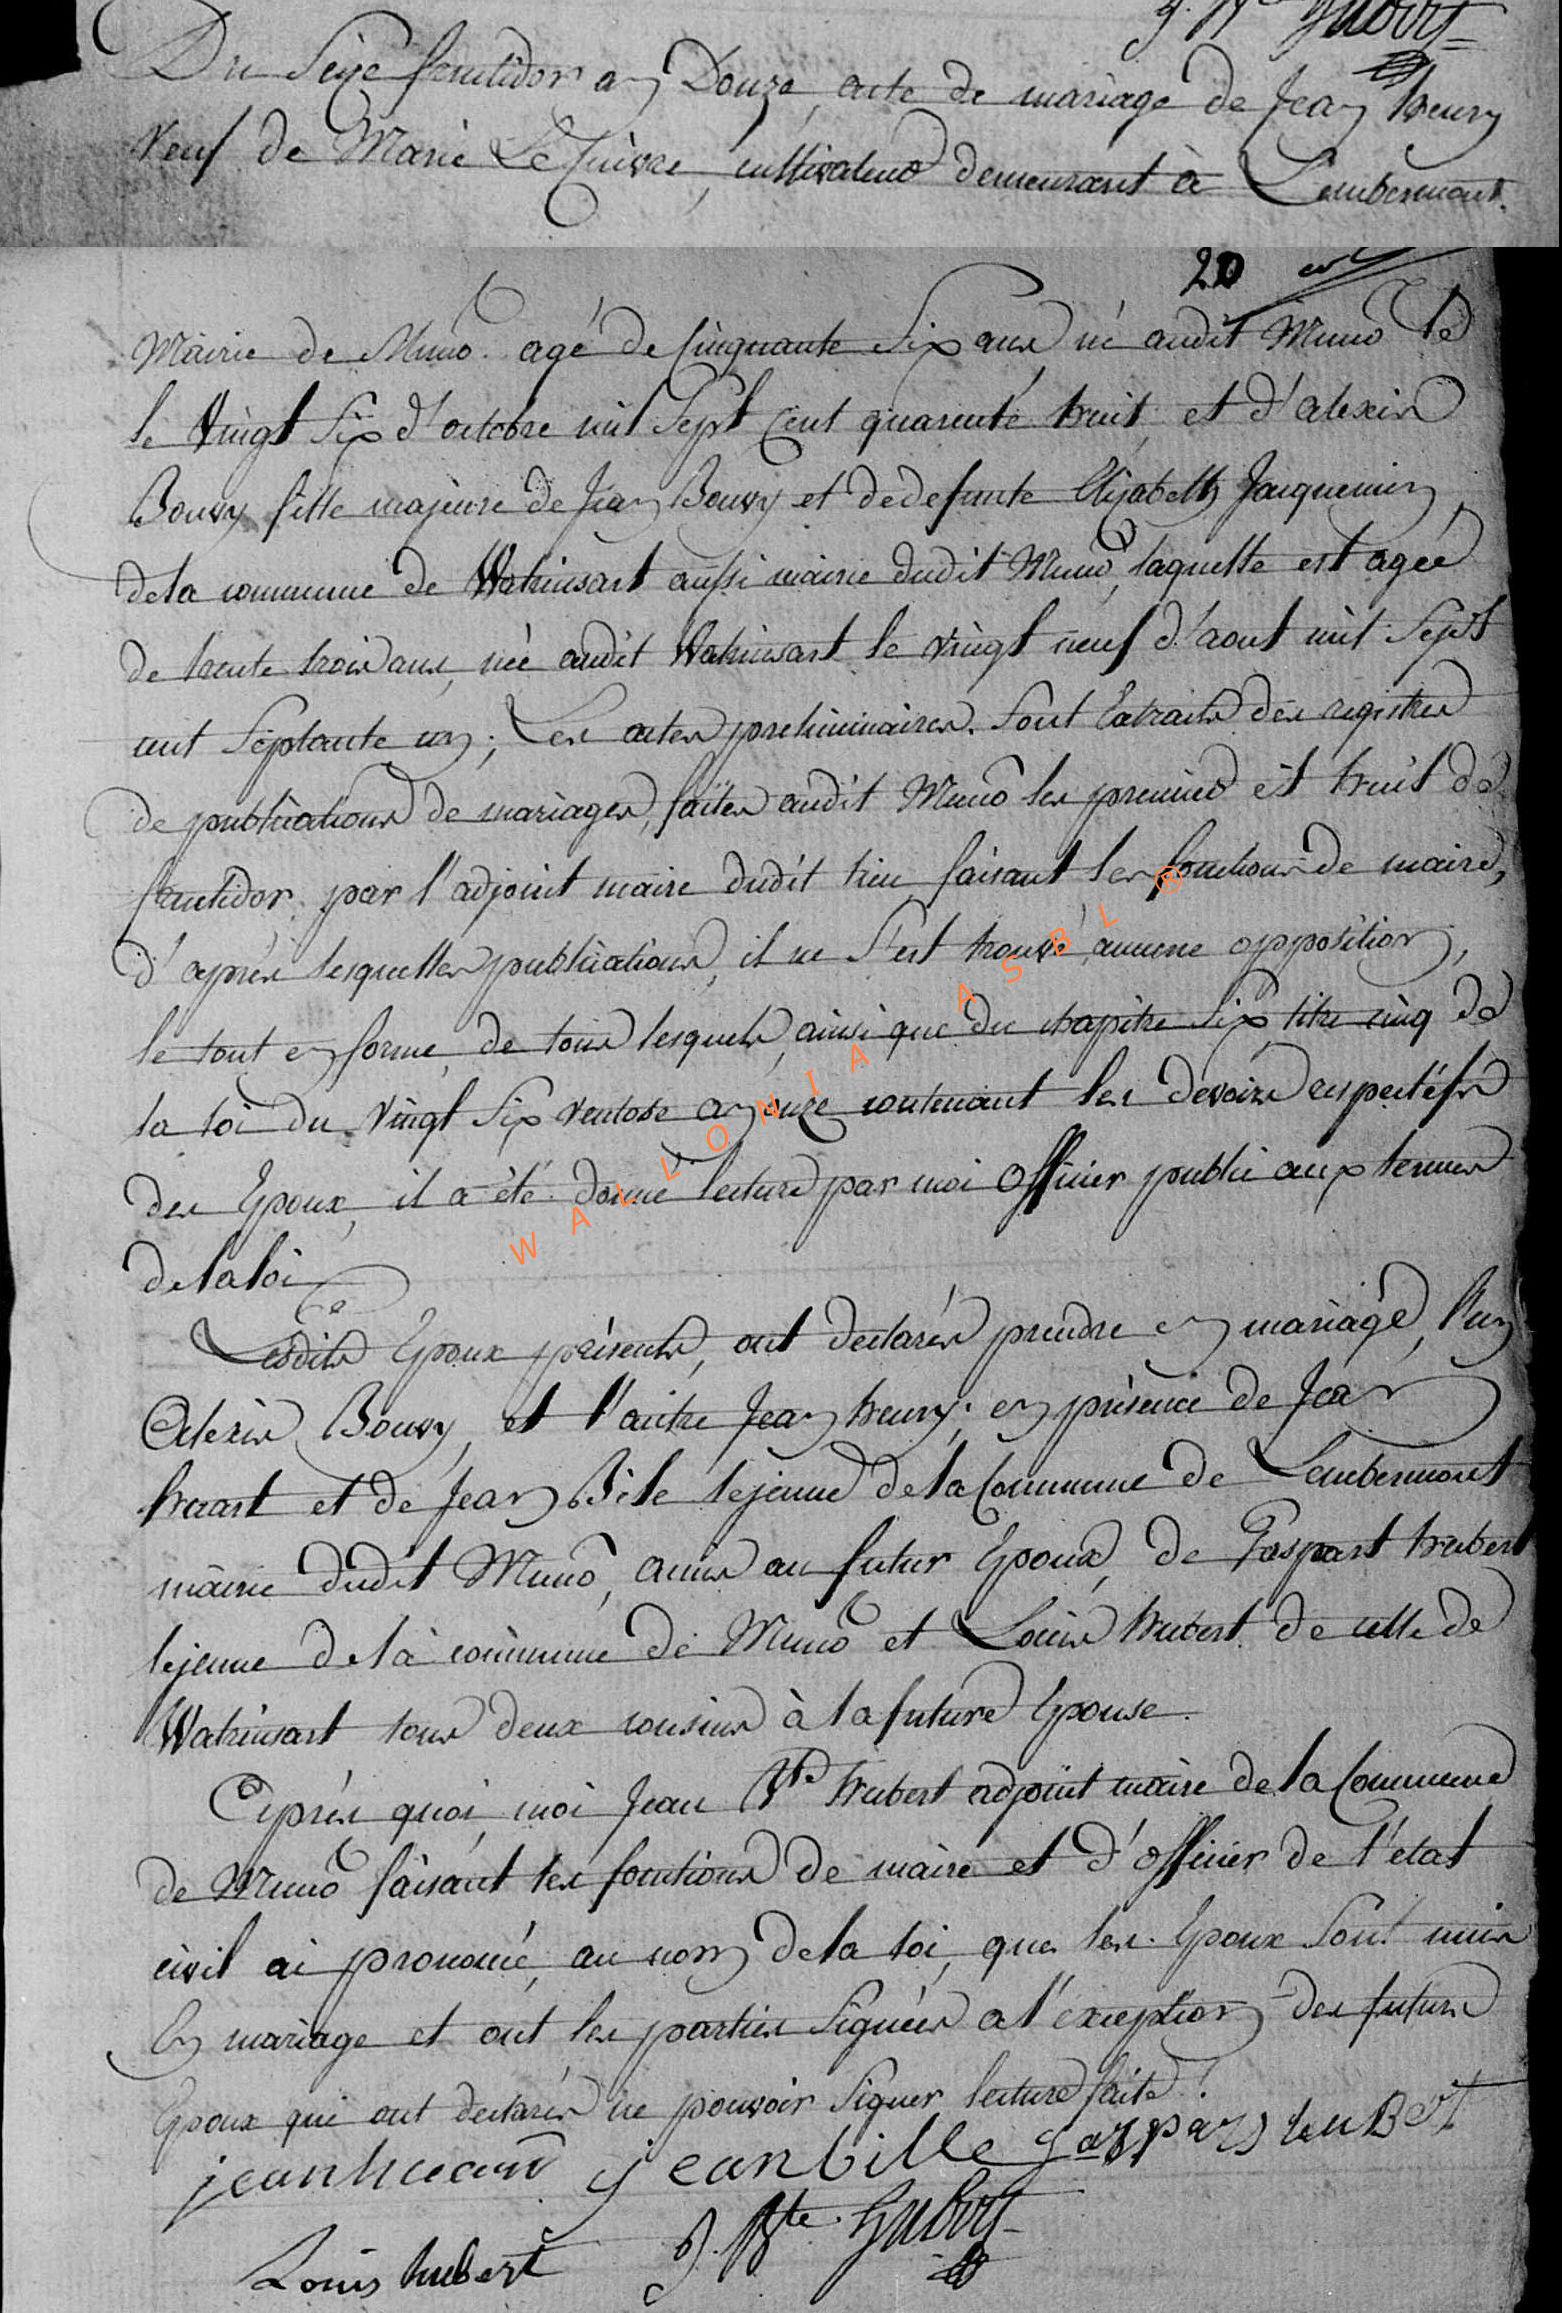 J. Bte Hubert
Du Seize fructidor an Douze, acte de mariage de Jean henry
Veuf de Marie Le Cuivre, cultivateur demeurant à Lambermont.
20
Mairie de Muno. agé de Cinquante Six ans né audit Muno le
le Vingt Six d'octobre mil Sept Cent quarente huit, et d'alexis
Bouvy fille majeure de Jean Bouvy et de defunte Elizabeth Jacquemin,
de la commune de Watrinsart aussi mairie dudit Muno, laquelle est agée
de trente trois ans, née audit Watrinsart le vingt neuf d'aout mil Sept
cent Septante un; Les actes preliminaires. Sont Extraits des registres
de publications de mariages, faites audit Muno les premier et huit de
fructidor par l'adjoint maire dudit lieu faisant les fonctions de maire,
d'après lesquelles publications, il ne S'est trouvé aucune opposition,
le tout en forme, de tous lesquels, ainsi que du chapitre Six, titre cinq de
la loi du vingt Six ventose an onze contenant les devoirs respectifs
des Epoux, il a été donné lecture par moi Officier public aux termes
de la loi
Lesdits Epoux présents, ont declarés prendre en mariage, l'un
Alexis Bouvy, et l'autre Jean henry; en présence de Jean
huart et de Jean Bile lejeune de la Commune de Lambermont
mairie dudit Muno, amis au futur Epoux, de Gaspart hubert
lejeune de la commune de Muno et Louis hubert de celle de
Watrinsart tous deux cousins à la future Epouse.
Après quoi, moi Jean Bte hubert adjoint maire de la Commune
de Muno faisant les fonctions de maire et d'Officier de l'état
civil ai prononcé, au nom de la loi, que les Epoux Sont unis
En mariage et ont les parties Signées a l'exception des futurs
Epoux qui ont declarés ne pouvoir Signer lecture faite.
jean huart jean bille gaspard huBert
Louis hubert J. Bte. Hubert
WALLONIA ASBL ®